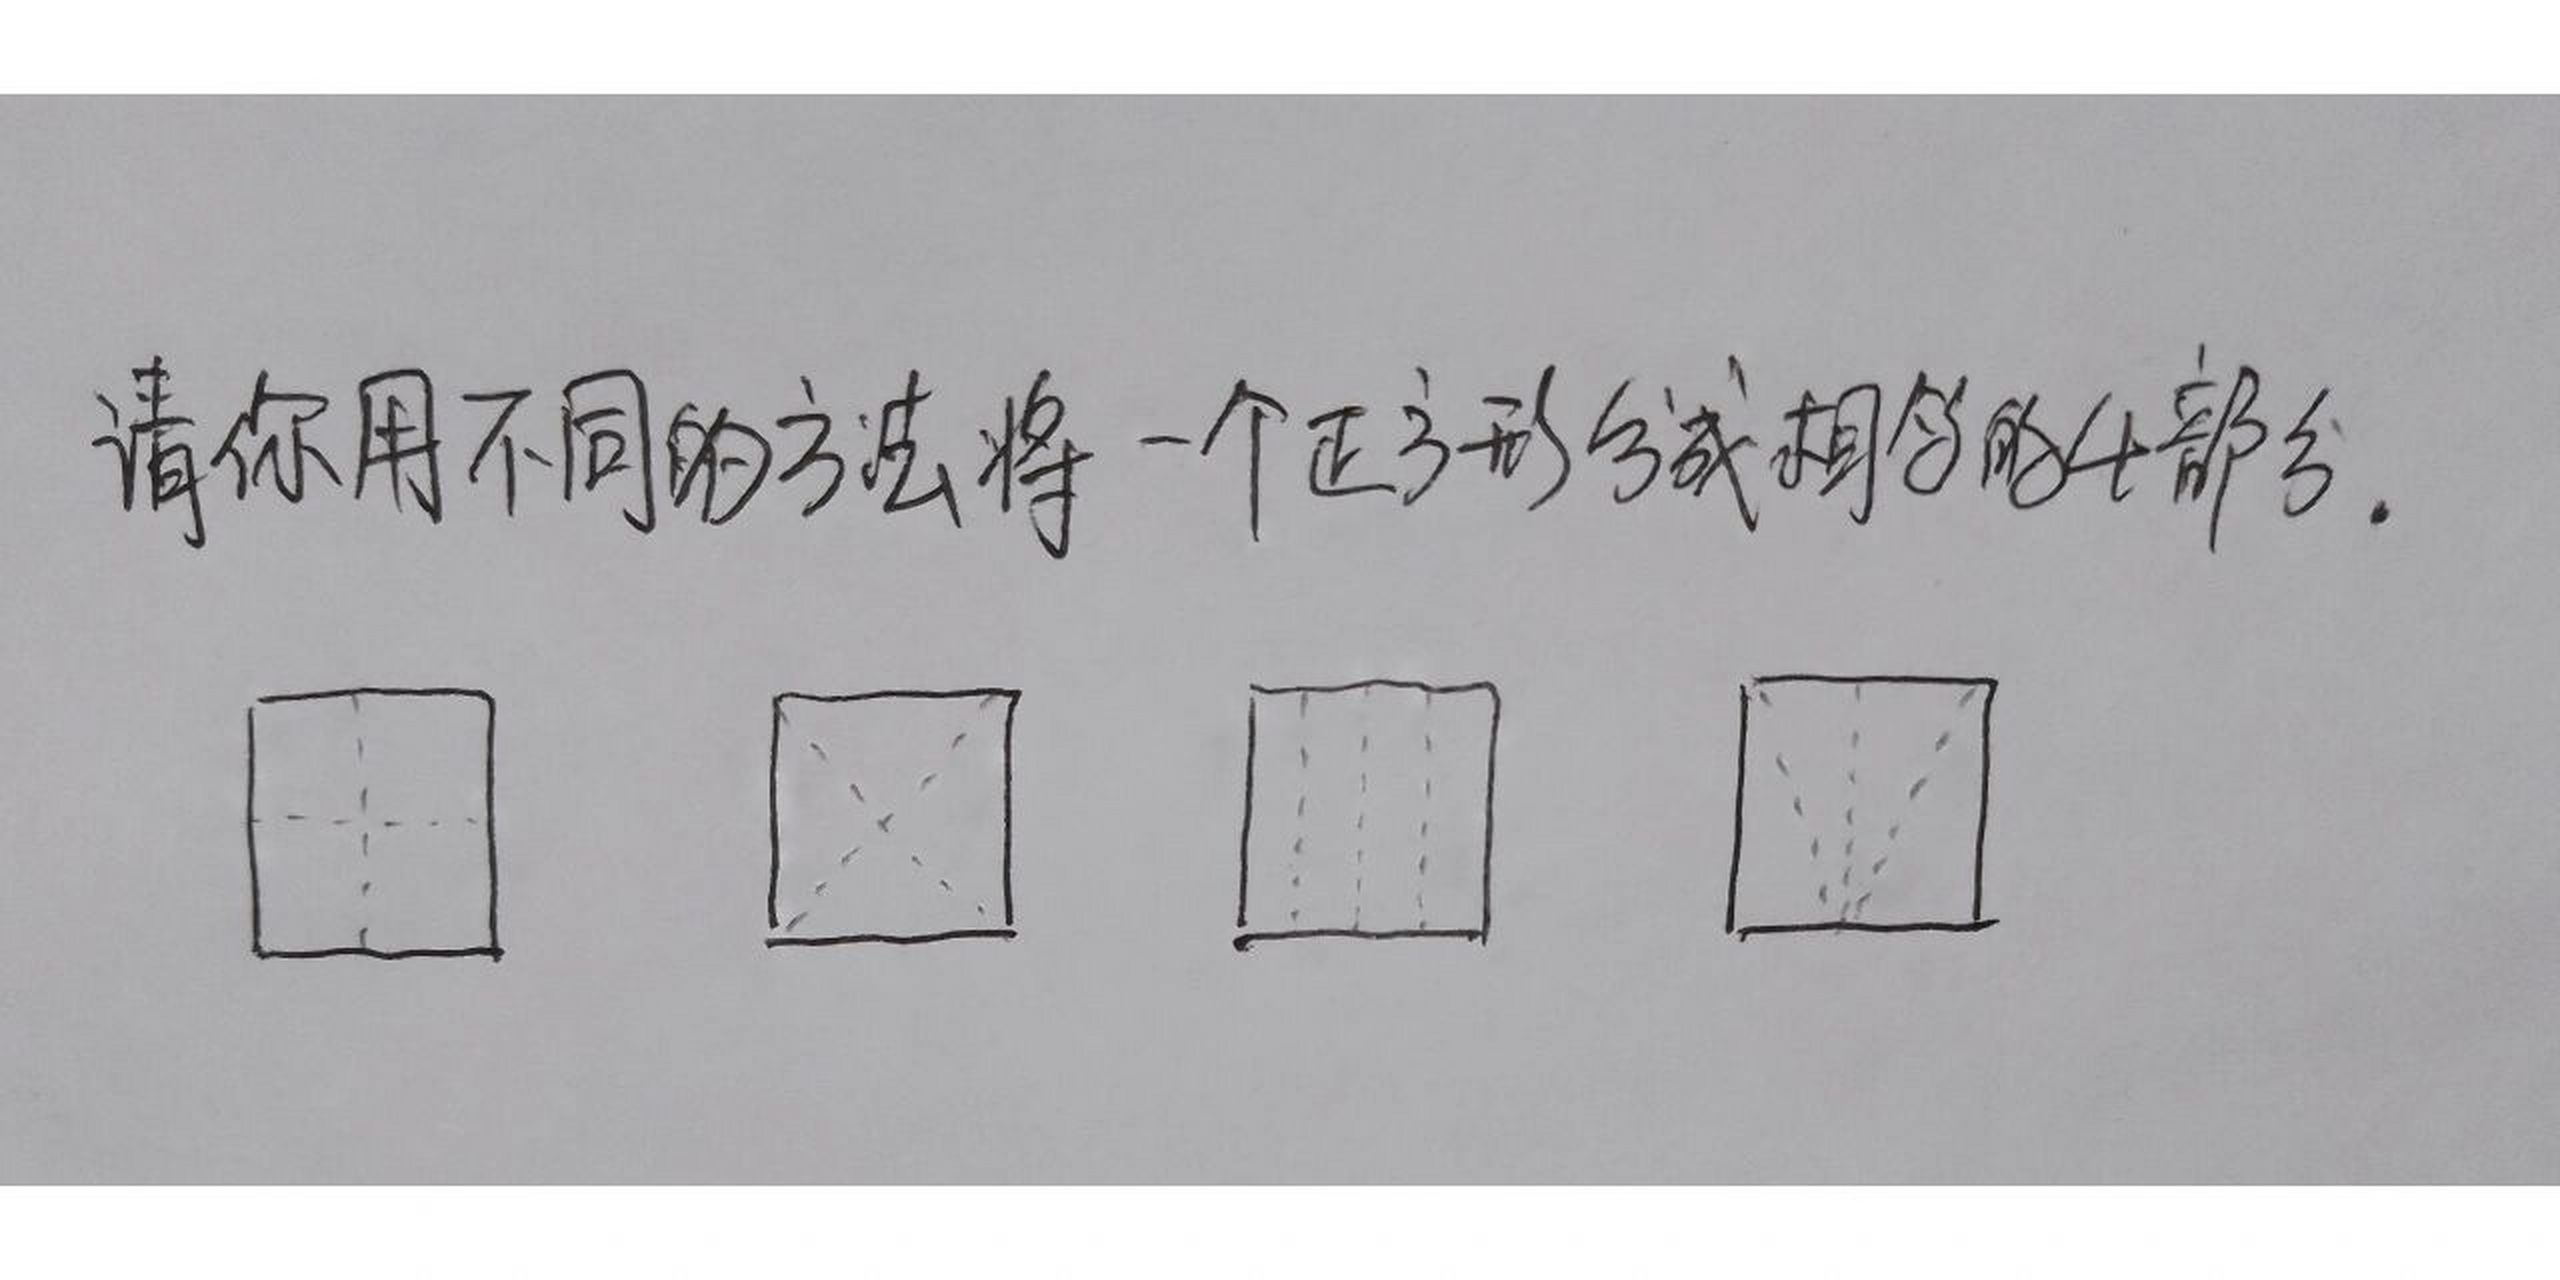 请你用不同的方法将一个正方形分成相等的4部分.